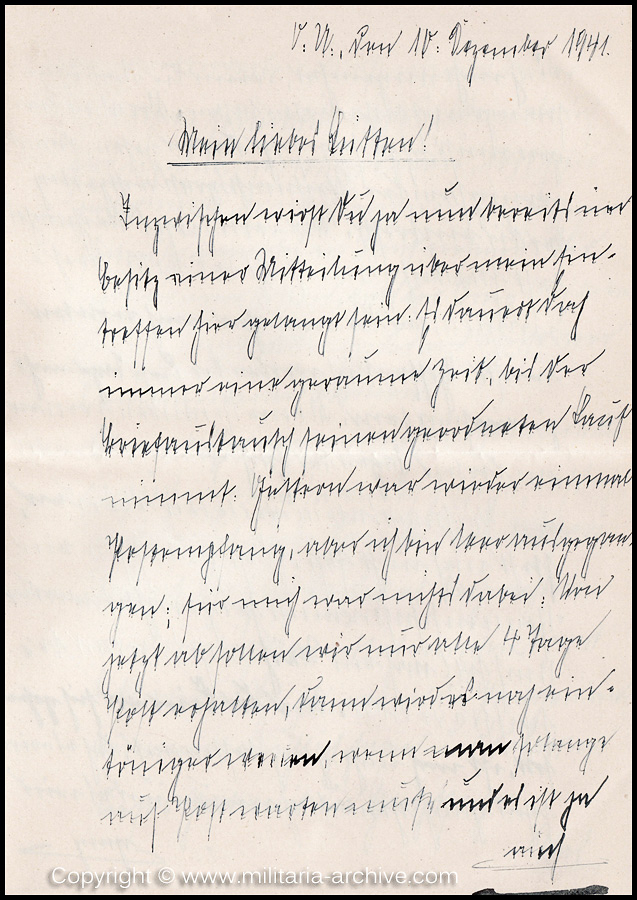 O.U., den 10. Dezember 1941.
Mein liebes
Inzwischen wirst Du ja nun bereits im
Besitz einer Mitteilung über mein Ein-
treffen hier gelangt sein. Es dauert doch
immer eine geraume Zeit, bis der
Briefaustausch seinen geordneten Lauf
nimmt. Gestern war wieder einmal
Postempfang, aber ich bin leer ausgegan-
gen; für mich war nichts dabei. Von
jetzt ab sollen wir nur alle 4 Tage
Post erhalten, dann wird es noch ein-
töniger werden, wenn man solange
auf Post warten muß und es ist ja
auch
Copyright © www.militaria-archive.com